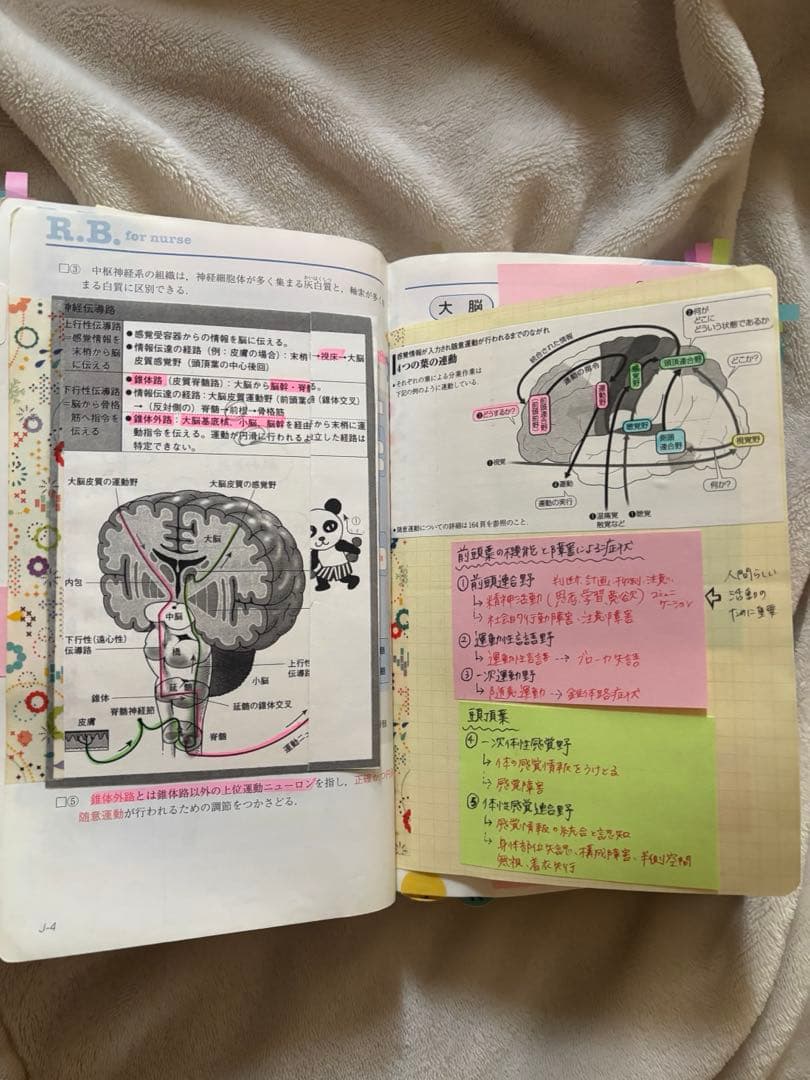 R.B. for nurse
□③ 中枢神経系の組織は、神経細胞体が多く集まる灰白質と、軸索が多く
かいはくしつ
まる白質に区別できる.
神経伝導路
上行性伝導路
=感覚情報を
末梢から脳
に伝える
●感覚受容器からの情報を脳に伝える。
●情報伝達の経路(例:皮膚の場合):末梢→視床→大脳
皮質感覚野(頭頂葉の中心後回)
下行性伝導路
=脳から骨格
筋へ指令を
伝える
●錐体路(皮質脊髄路):大脳から脳幹・脊
る。
●情報伝達の経路:大脳皮質運動野(前頭葉
(錐体交叉)
→(反対側の)脊髄→前根→骨格筋
●錐体外路:大脳基底核、小脳、脳幹を経由
から末梢に運
動指令を伝える。運動が円滑に行われるよ
立した経路は
特定できない。
大脳皮質の運動野
大脳皮質の感覚野
大脳
内包
中脳
下行性(遠心性)
伝導路
橋
上行性
伝導路
小脳
延髄
錐体
延髄の錐体交叉
脊髄神経節
皮膚
脊髄
運動ニュ
□⑤ 錐体外路とは錐体路以外の上位運動ニューロンを指し,
随意運動が行われるための調節をつかさどる.
J-4
大脳
感覚情報が入力され随意運動が行われるまでのながれ
4つの葉の連動
●それぞれの葉による分業作業は
下記の例のように連動している.
統合された情報
運動の指令
❷何が
どこに
どういう状態であるか
どこか?
何か?
❸どうするか?
前頭連合野
(前頭前野)
運動野
感覚野
頭頂連合野
聴覚野
側頭
連合野
視覚野
❶視覚
❹運動
運動の実行
❶温痛覚
触覚など
❶聴覚
●随意運動についての詳細は164頁を参照のこと.
前頭葉の機能と障害による症状
①前頭連合野 判断、計画、抑制、注意、
↳精神活動(思考、学習、意欲) コミュニ
ケーション
↳社会的行動障害・注意障害
②運動性言語野
↳運動性言語 --> ブローカ失語
③一次運動野
↳随意運動 --> 錐体路症状
人間らしい
活動の
ために重要
頭頂葉
④一次体性感覚野
↳体の感覚情報をうけとる
↳感覚障害
⑤体性感覚連合野
↳感覚情報の統合と認知
↳身体部位失認、構成障害、半側空間
無視、着衣失行